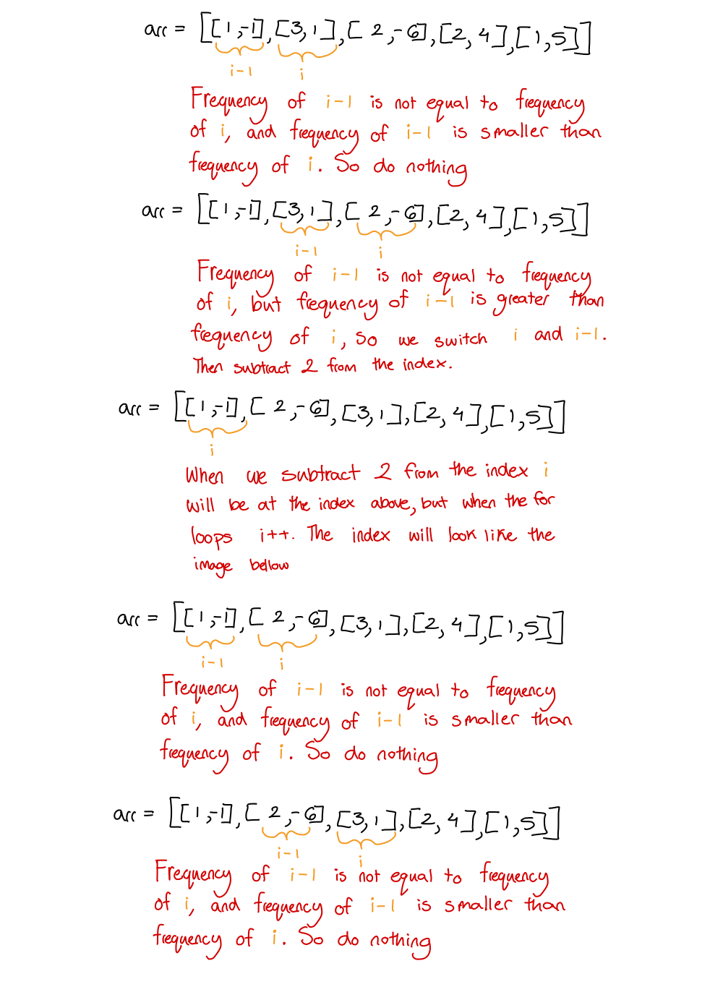 arr = [[1,-1],[3,1],[2,-6],[2,4],[1,5]]
i-1 i
Frequency of i-1 is not equal to frequency
of i, and frequency of i-1 is smaller than
frequency of i. So do nothing
arr = [[1,-1],[3,1],[2,-6],[2,4],[1,5]]
i-1 i
Frequency of i-1 is not equal to frequency
of i, but frequency of i-1 is greater than
frequency of i, so we switch i and i-1.
Then subtract 2 from the index.
arr = [[1,-1],[2,-6],[3,1],[2,4],[1,5]]
i
When we subtract 2 from the index i
will be at the index above, but when the for
loops i++. The index will look like the
image bellow
arr = [[1,-1],[2,-6],[3,1],[2,4],[1,5]]
i-1 i
Frequency of i-1 is not equal to frequency
of i, and frequency of i-1 is smaller than
frequency of i. So do nothing
arr = [[1,-1],[2,-6],[3,1],[2,4],[1,5]]
i-1 i
Frequency of i-1 is not equal to frequency
of i, and frequency of i-1 is smaller than
frequency of i. So do nothing